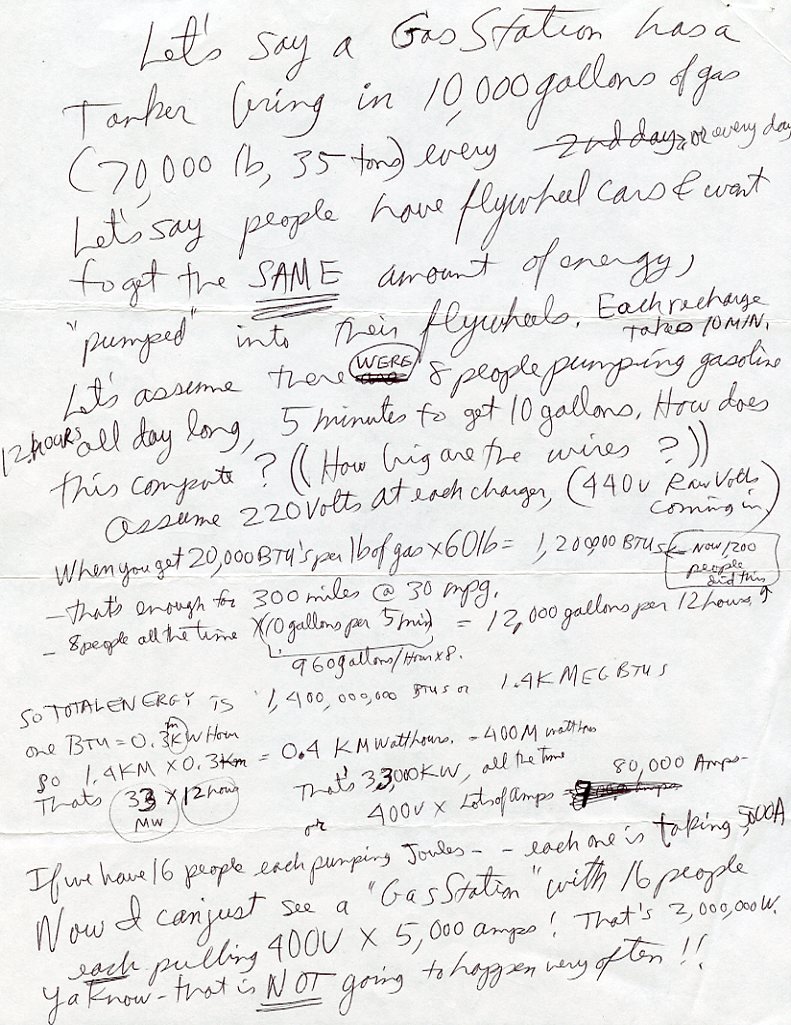 Let's say a Gas Station has a
Tanker bring in 10,000 gallons of gas
(70,000 lb, 35 tons) every 2nd day, or every day
Let's say people have flywheel cars & want
to get the SAME amount of energy,
"pumped" into their flywheels. Each recharge
takes 10 MIN.
Let's assume there WERE 8 people pumping gasoline
12 hours all day long, 5 minutes to get 10 gallons. How does
this compute? ((How big are the wires?))
Assume 220 Volts at each charger, (440v Raw Volts
coming in)
When you get 20,000 BTU's per lb of gas x 60 lb = 1,200,000 BTUs ← NOW 1,200
people
did this
- that's enough for 300 miles @ 30 mpg.
- 8 people all the time x (10 gallons per 5 min) = 12,000 gallons per 12 hours
960 gallons/Hour x 8.
SO TOTAL ENERGY IS 1,400,000,000 BTUs or 1.4K MEG BTUs
one BTU = 0.3 KW Hour
m
so 1.4KM x 0.3 Km = 0.4 KM Watthours. = 400M watt hrs
Thats 33 x 12 hours
MW
That's 33,000 KW, all the time
or 400V x Lots of Amps = 80,000 Amps-
If we have 16 people each pumping Joules - - each one is taking 5000A
Now I can just see a "Gas Station" with 16 people
each pulling 400V x 5,000 amps! That's 2,000,000W.
Ya Know - that is NOT going to happen very often!!